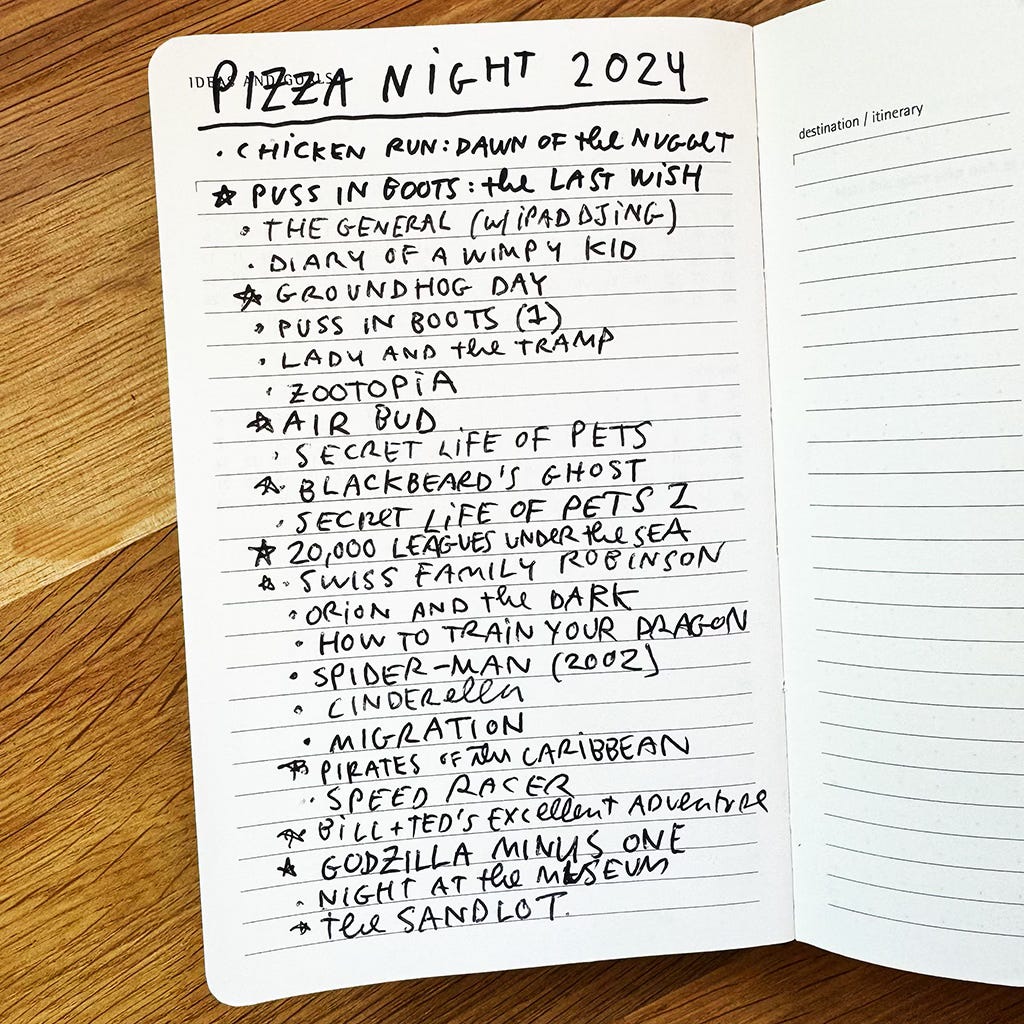 IDEAS AND GOALS
PIZZA NIGHT 2024
• CHICKEN RUN: DAWN OF the NUGGET
☆ PUSS IN BOOTS: the LAST WISH
• THE GENERAL (w/ iPAD DJING)
• DIARY OF A WIMPY KID
☆ GROUNDHOG DAY
• PUSS IN BOOTS (1)
• LADY AND the TRAMP
• ZOOTOPIA
☆ AIR BUD
• SECRET LIFE OF PETS
☆ BLACKBEARD'S GHOST
• SECRET LIFE OF PETS 2
☆ 20,000 LEAGUES UNDER the SEA
☆ • SWISS FAMILY ROBINSON
• ORION AND the DARK
• HOW TO TRAIN YOUR DRAGON
• SPIDER-MAN (2002)
• CINDERella
• MIGRATION
☆ PIRATES OF the CARIBBEAN
• SPEED RACER
☆ BILL + TED'S Excellent ADVenture
☆ GODZILLA MINUS ONE
• NIGHT AT the MUSEUM
☆ the SANDLOT.
destination / itinerary